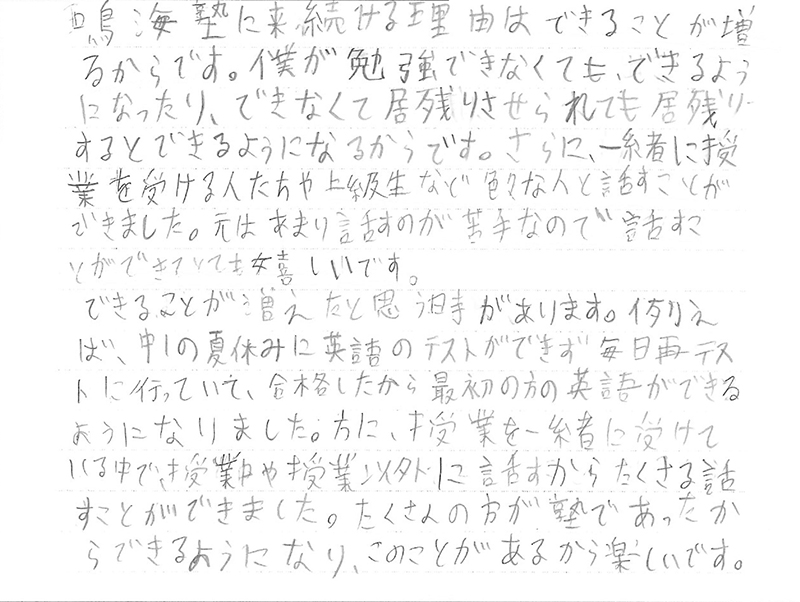 鳴海塾に来続ける理由はできることが増
るからです。僕が勉強できなくても、できるよう
になったり、できなくて居残りさせられても居残り
するとできるようになるからです。さらに、一緒に授
業を受ける人たちや上級生など色々な人と話すことが
できました。元はあまり話すのが苦手なので話すこ
とができてとても嬉しいです。
できることが増えたと思う時があります。例え
ば、中1の夏休みに英語のテストができず毎日再テス
トに行っていて、合格したから最初の方の英語ができる
ようになりました。方に、授業を一緒に受けて
いる中で、授業中や授業以外に話すからたくさる話
すことができました。たくさんの方が塾であったか
らできるようになり、このことがあるから楽しいです。